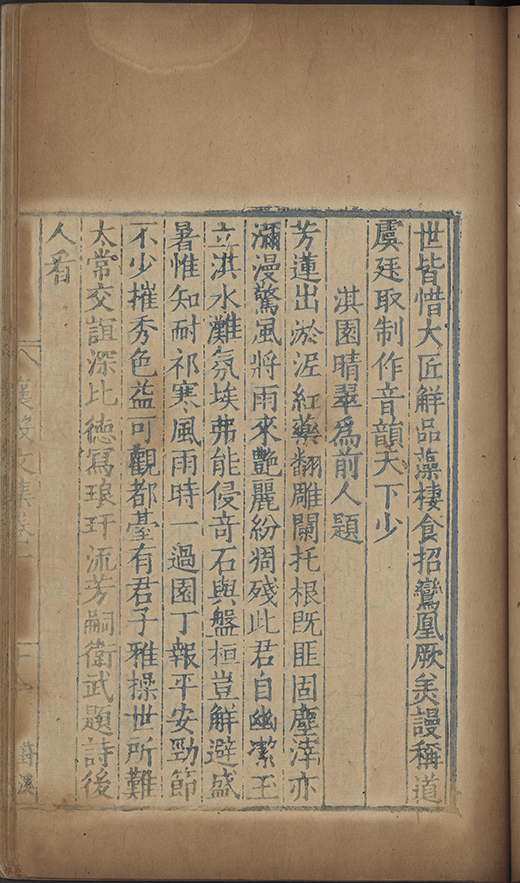 世皆惜大匠鮮品藻棲食招鸞凰厥美謾稱道
虞廷取制作音韻天下少
淇園晴翠為前人題
芳蓮出淤泥紅藥翻雕闌托根既匪固塵滓亦
瀰漫驚風將雨來艷麗紛凋殘此君自幽潔玉
立淇水灘氛埃弗能侵奇石與盤桓豈解避盛
暑惟知耐祁寒風雨時一過園丁報平安勁節
不少摧秀色益可觀都臺有君子雅操世所難
太常交誼深比德寫琅玕流芳嗣衛武題詩後
人看